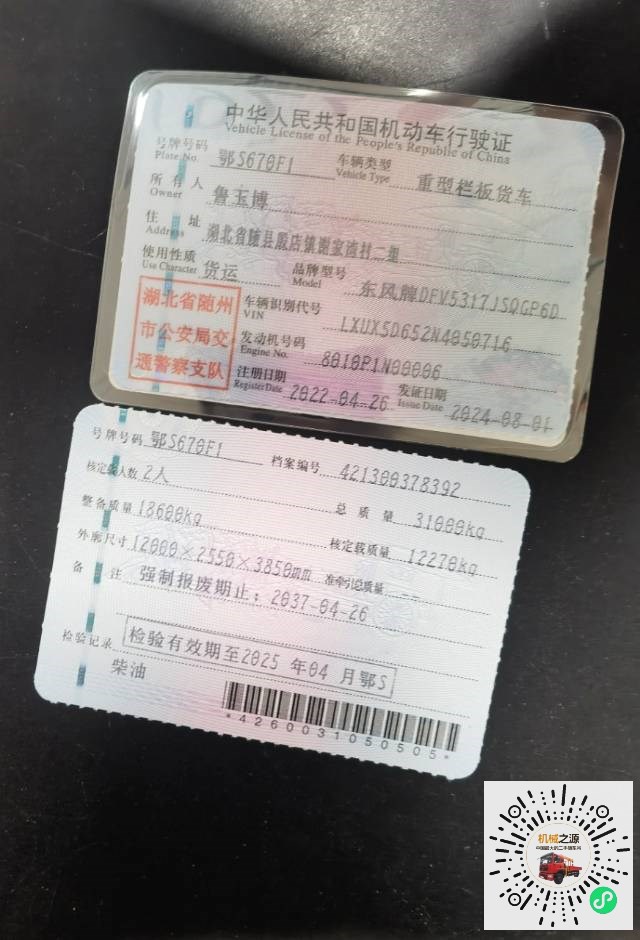 中华人民共和国机动车行驶证
Vehicle License of the People's Republic of China
号牌号码 鄂S670F1 车辆类型 重型栏板货车
Plate No. Vehicle Type
所有人 鲁玉博
Owner
住址 湖北省随县殷店镇谢家湾村二组
Address
使用性质 货运 品牌型号 东风牌DFV5317JSQGP6D
Use Character Model
湖北省随州
市公安局交
通警察支队
车辆识别代号 LXUX5D652N4050716
VIN
发动机号码 8010P1N00006
Engine No.
注册日期 2022-04-26 发证日期 2024-08-01
Register Date Issue Date
号牌号码 鄂S670F1 档案编号 421300378392
核定载人数 2人 总质量 31000kg
整备质量 18600kg 核定载质量 12270kg
外廓尺寸 12000×2550×3850mm 准牵引总质量 --
备注 强制报废期止：2037-04-26
检验记录 检验有效期至2025 年04 月鄂S
柴油
*4260031050505*
机械之源